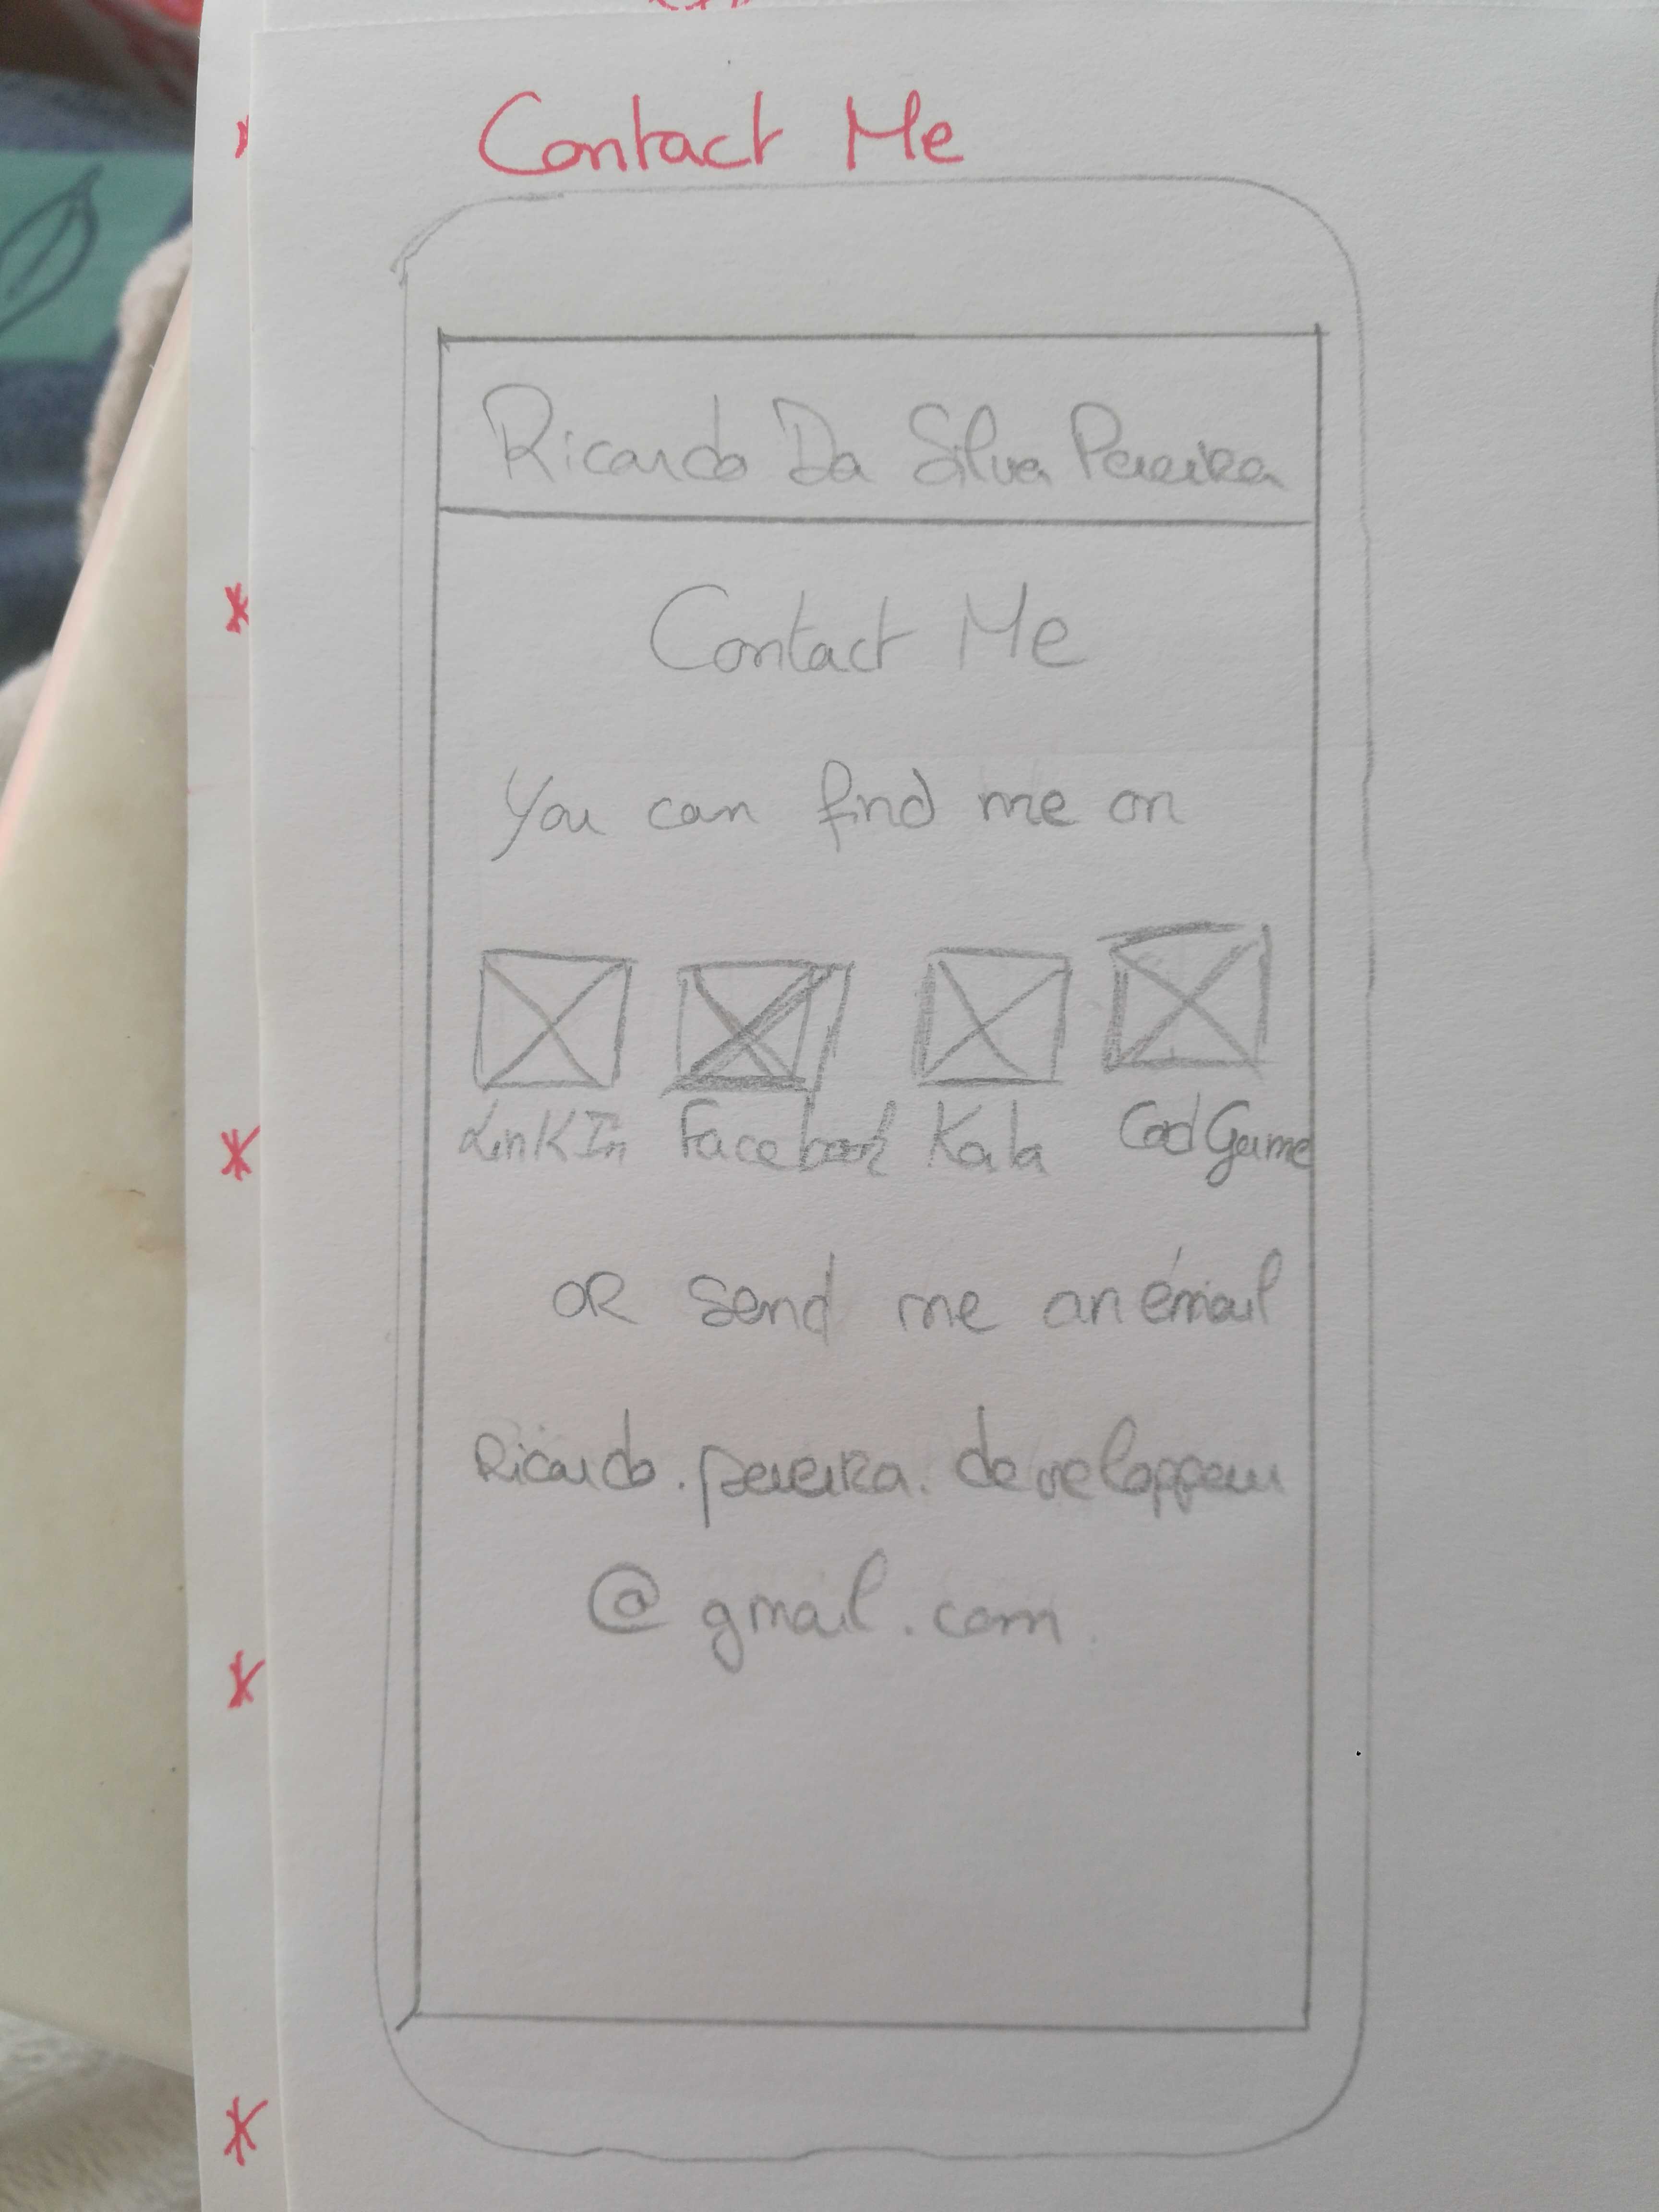 Contact Me
Ricardo Da Silva Pereira
Contact Me
You can find me on
LinKIn Facebook Kata CodGame
OR send me an émail
Ricardo.pereira.developpeur
@gmail.com.